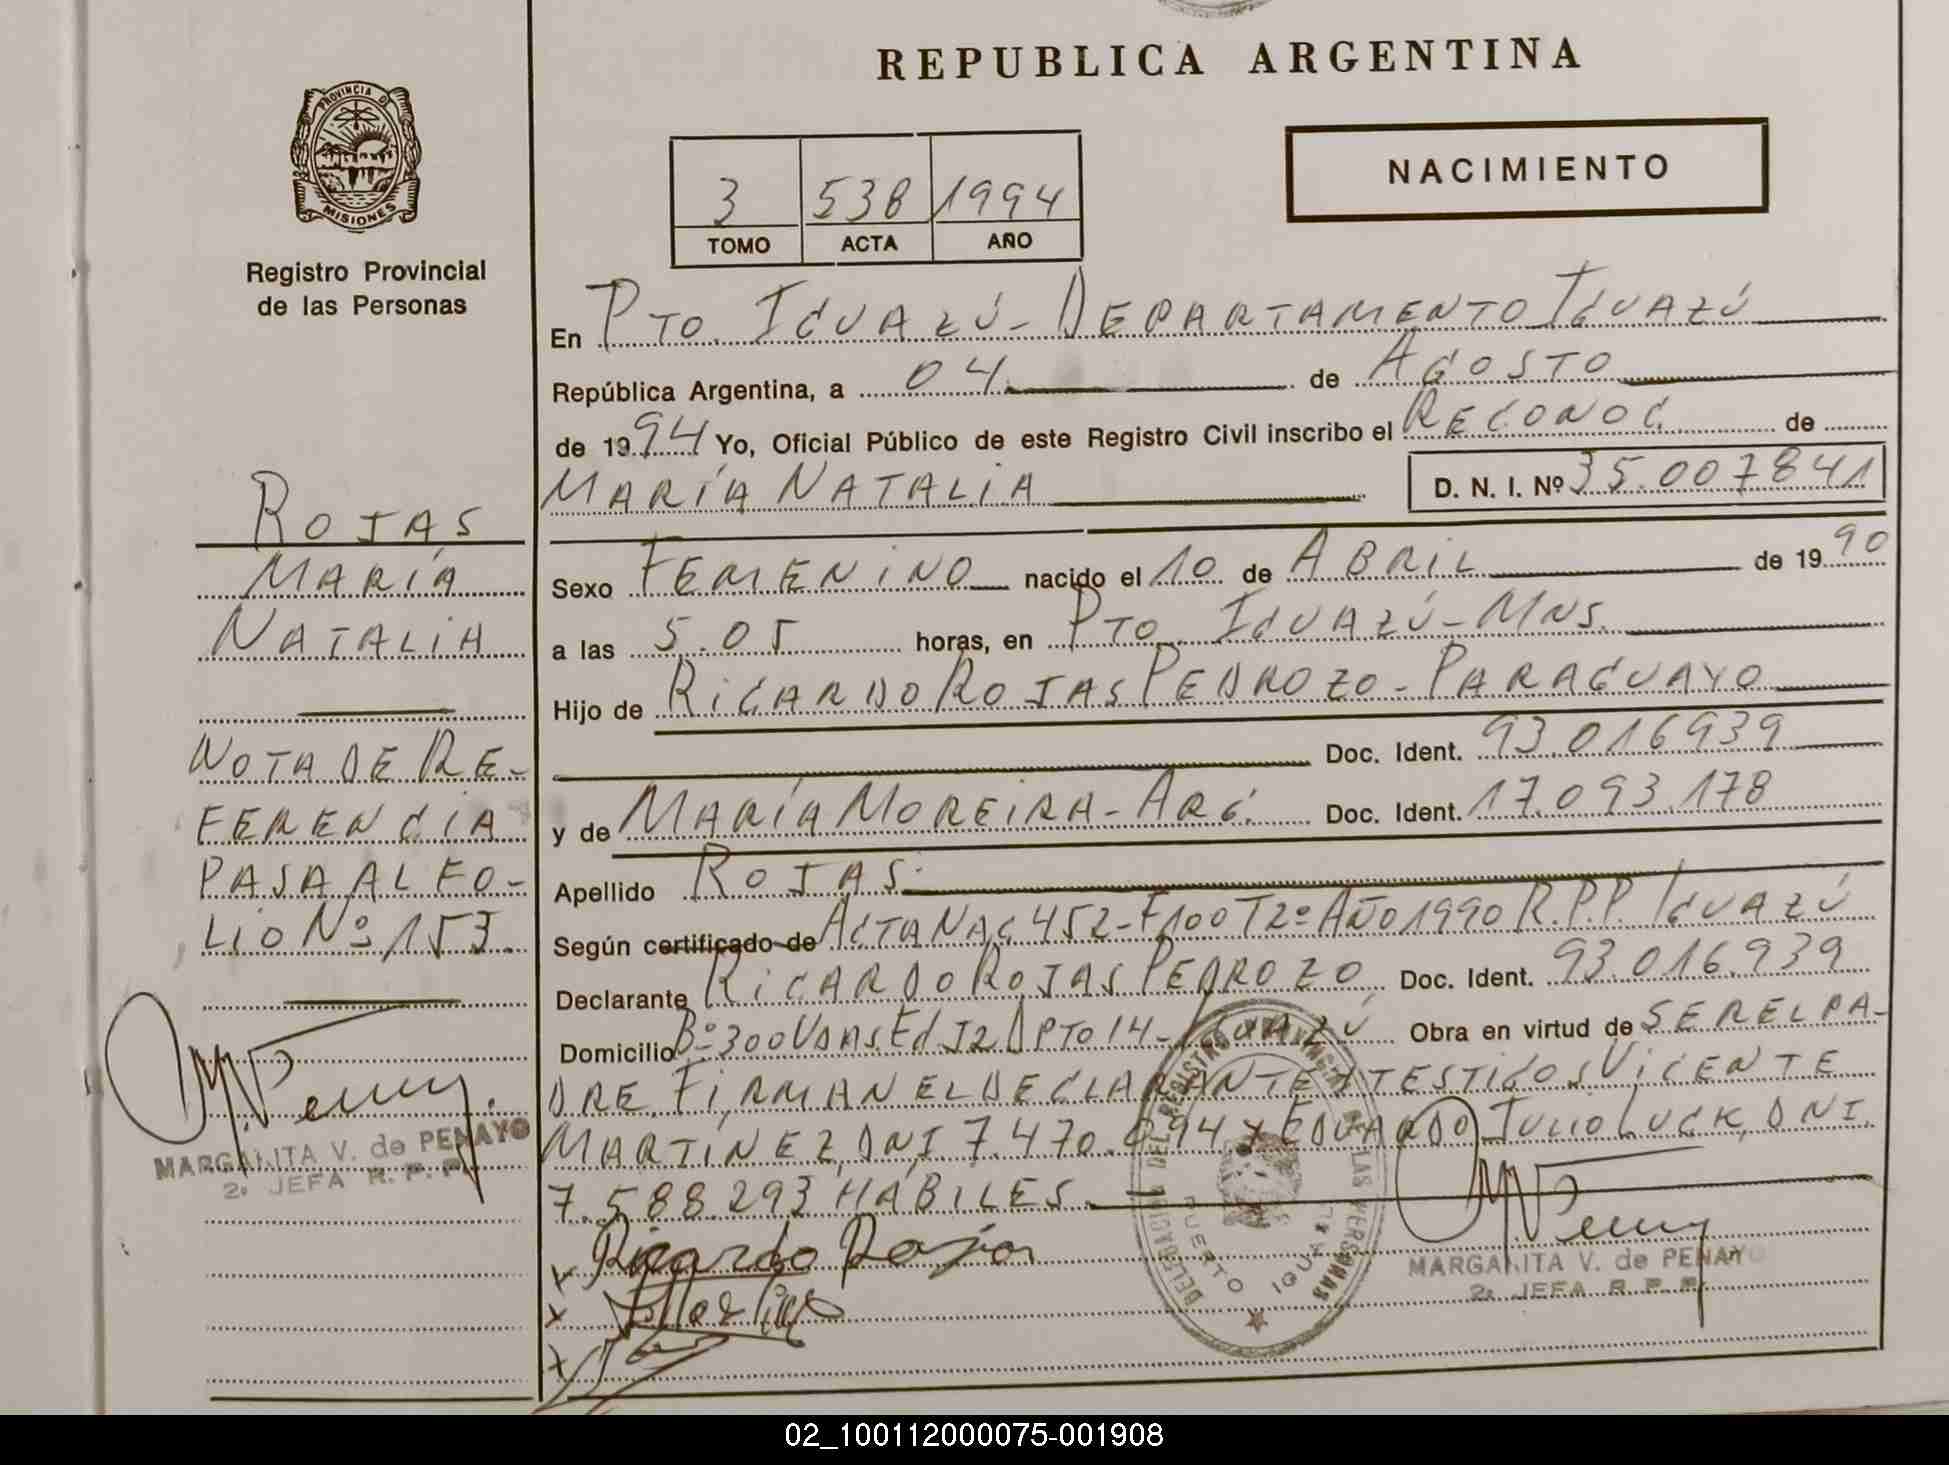 REPUBLICA ARGENTINA
PROVINCIA DE
MISIONES
Registro Provincial
de las Personas
NACIMIENTO
3 538 1994
TOMO ACTA AÑO
En Pto. Iguazú - Departamento Iguazú
República Argentina, a 04 de Agosto
de 1994 Yo, Oficial Público de este Registro Civil inscribo el Reconoc. de
María Natalia D. N. I. Nº 35.007841
Sexo Femenino nacido el 10 de Abril de 1990
a las 5.05 horas, en Pto. Iguazú - Mns.
Hijo de Ricardo Rojas Pedrozo - Paraguayo
Doc. Ident. 93.016939
y de María Moreira - Arg. Doc. Ident. 17.093.178
Apellido Rojas
Según certificado de Acta Nac 452 - F100 T2º Año 1990 R.P.P. Iguazú
Declarante Ricardo Rojas Pedrozo Doc. Ident. 93.016.939
Domicilio Bº 300 Vdas. Ed J2 Dpto 14 - Iguazú Obra en virtud de ser el pa-
dre. Firman el declarante y testigos Vicente
Martínez, DNI 7.470.094 y Eduardo Julio Luck, DNI.
7.588.293 hábiles.
x Ricardo Rojas
x
x
MARGARITA V. de PENAYO
2ª JEFA R. P. P.
DELEGACION DEL REGISTRO PROVINCIAL DE LAS PERSONAS
PUERTO IGUAZU
Rojas
María
Natalia
Nota de Re-
ferencia
pasa al Fo-
lio Nº 153.
MARGARITA V. de PENAYO
2ª JEFA R. P. P.
02_100112000075-001908